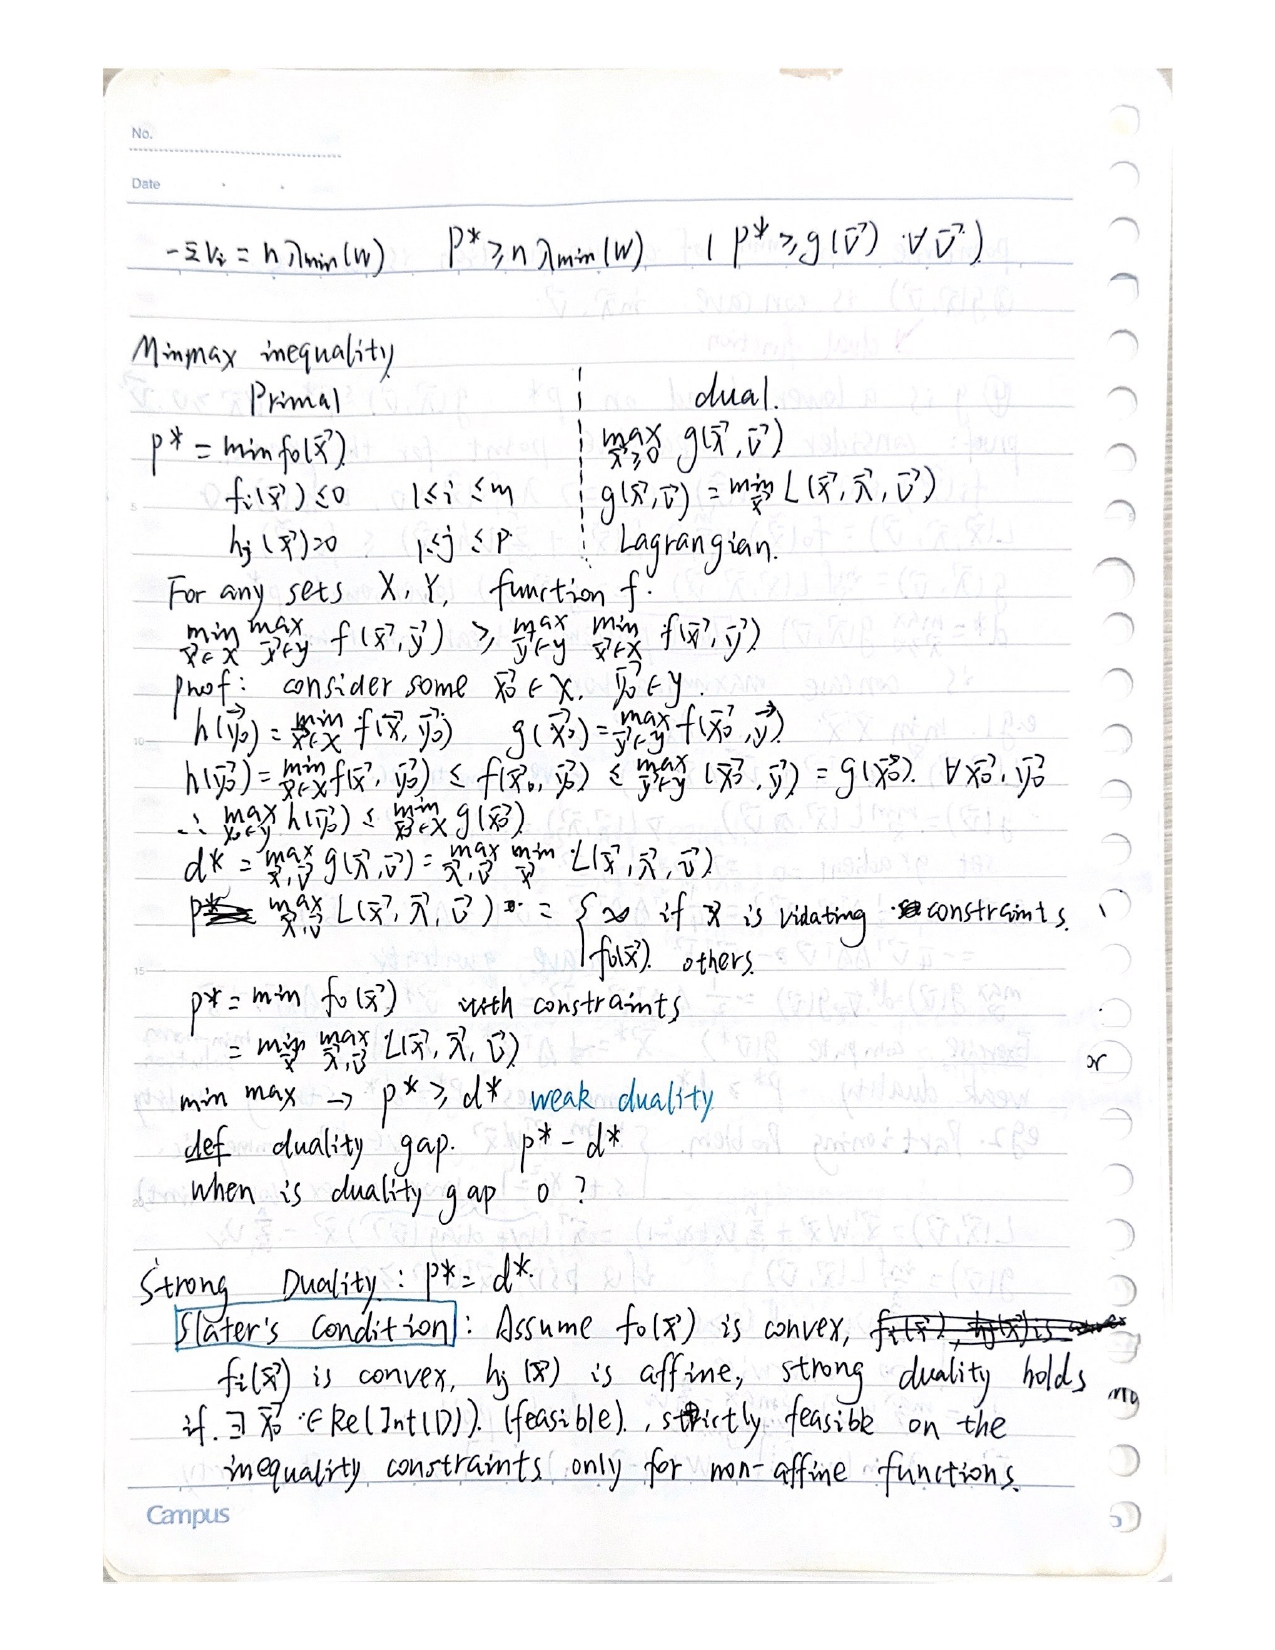 No.
Date
-Σvᵢ = nλmin(W)   p* ≥ nλmin(W)   ( p* ≥ g(v⃗) ∀ v⃗ )
Minmax inequality
Primal   dual.
p* = min f₀(x⃗)   max λ⃗≥0 g(λ⃗, v⃗)
fᵢ(x⃗) ≤ 0   1 ≤ i ≤ m   g(λ⃗, v⃗) = min x⃗ L(x⃗, λ⃗, v⃗)
hⱼ(x⃗) = 0   1 ≤ j ≤ p   Lagrangian.
For any sets X, Y, function f.
min x⃗∈X max y⃗∈Y f(x⃗, y⃗) ≥ max y⃗∈Y min x⃗∈X f(x⃗, y⃗)
proof: consider some x⃗₀ ∈ X, y⃗₀ ∈ Y.
h(y⃗₀) = min x⃗∈X f(x⃗, y⃗₀)   g(x⃗₀) = max y⃗∈Y f(x⃗₀, y⃗)
h(y⃗₀) = min x⃗∈X f(x⃗, y⃗₀) ≤ f(x⃗₀, y⃗₀) ≤ max y⃗∈Y (x⃗₀, y⃗) = g(x⃗₀). ∀ x⃗₀, y⃗₀
∴ max y⃗₀∈Y h(y⃗₀) ≤ min x⃗₀∈X g(x⃗₀)
d* = max λ⃗,v⃗ g(λ⃗, v⃗) = max λ⃗,v⃗ min x⃗ L(x⃗, λ⃗, v⃗)
p* max λ⃗,v⃗ L(x⃗, λ⃗, v⃗) = { ∞ if x⃗ is violating constraints.
f₀(x⃗). others.
p* = min f₀(x⃗) with constraints
= min x⃗ max λ⃗,v⃗ L(x⃗, λ⃗, v⃗)
or
min max → p* ≥ d* weak duality
def duality gap. p* - d*
when is duality gap 0 ?
Strong Duality : p* = d*.
Slater's Condition : Assume f₀(x⃗) is convex,
fᵢ(x⃗) is convex, hⱼ(x⃗) is affine, strong duality holds
if. ∃ x⃗₀ ∈ Rel Int(D)). (feasible). , strictly feasible on the
inequality constraints only for non-affine functions.
Campus